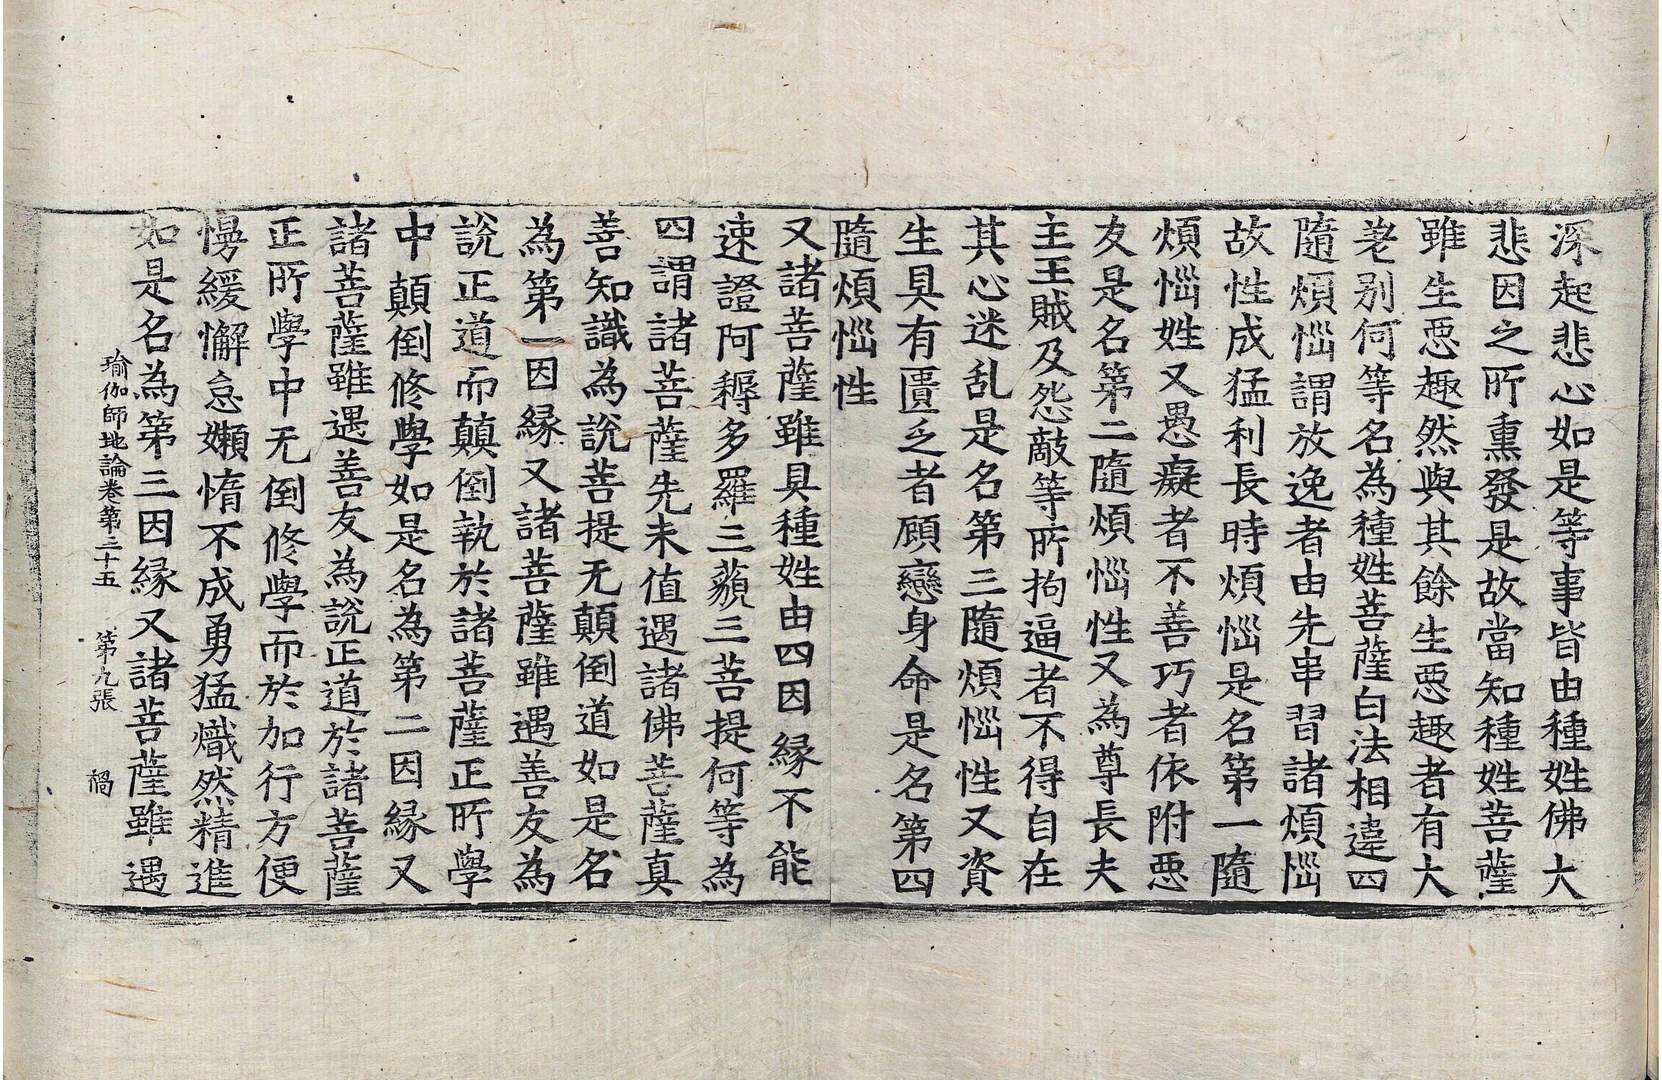 深起悲心如是等事皆由種姓佛大
悲因之所熏發是故當知種姓菩薩
雖生惡趣然與其餘生惡趣者有大
差别何等名為種姓菩薩白法相違四
隨煩惱謂放逸者由先串習諸煩惱
故性成猛利長時煩惱是名第一隨
煩惱姓又愚癡者不善巧者依附惡
友是名第二隨煩惱性又為尊長夫
主王賊及怨敵等所拘逼者不得自在
其心迷乱是名第三隨煩惱性又資
生具有匱乏者顧戀身命是名第四
隨煩惱性
又諸菩薩雖具種姓由四因緣不能
速證阿耨多羅三藐三菩提何等為
四謂諸菩薩先未值遇諸佛菩薩真
善知識為說菩提无顛倒道如是名
為第一因緣又諸菩薩雖遇善友為
說正道而顛倒執於諸菩薩正所學
中顛倒修學如是名為第二因緣又
諸菩薩雖遇善友為說正道於諸菩薩
正所學中无倒修學而於加行方便
慢緩懈怠嬾惰不成勇猛熾然精進
如是名為第三因緣又諸菩薩雖遇
瑜伽師地論卷第三十五 第九張 禍